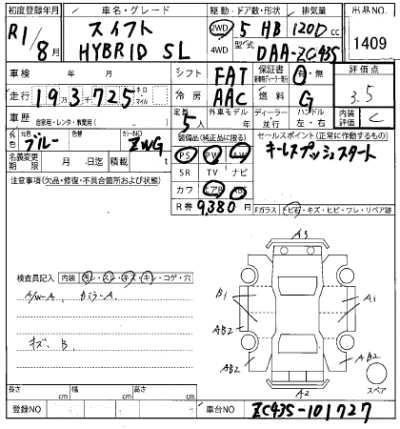 初度登録年月 車名・グレード 駆動・ドア数・形状 排気量 出品NO
R1/8月 スイフト HYBRID SL 2WD 4WD 5 HB 1200cc 1409
型式 DAA-ZC43S
車検 年 月 シフト FAT 保証書 有・無 評価点
走行 193,725 キロ マイル 冷房 AAC 燃料 G 3.5
車歴 自家用・レンタ・教習用 定員 5人 外車モデル 年 ディーラー 並行 ハンドル 左・右 内装評価 C
外色 元色 ブルー 色替 カラーNO ZWG 装備品(純正品に限る) セールスポイント(正常に作動するもの)
名義変更期限 月 日迄 積載 t PS PW AW キーレスプッシュスタート
注意事項(欠品・修復・不具合箇所および状態) SR TV ナビ
カワ エアB ABS
R券 9,380円 Fガラス トビ石・キズ・ヒビ・ワレ・リペア跡
A3
検査員記入 内装 汚レ・スレ・キズ・キレ・コゲ・穴
A/W-A カミラーA B1 A1
AB2
キズ・B AB2 AB2
A2 スペア
長さ cm 幅 cm 高さ cm
登録NO 車台NO ZC43S-101727